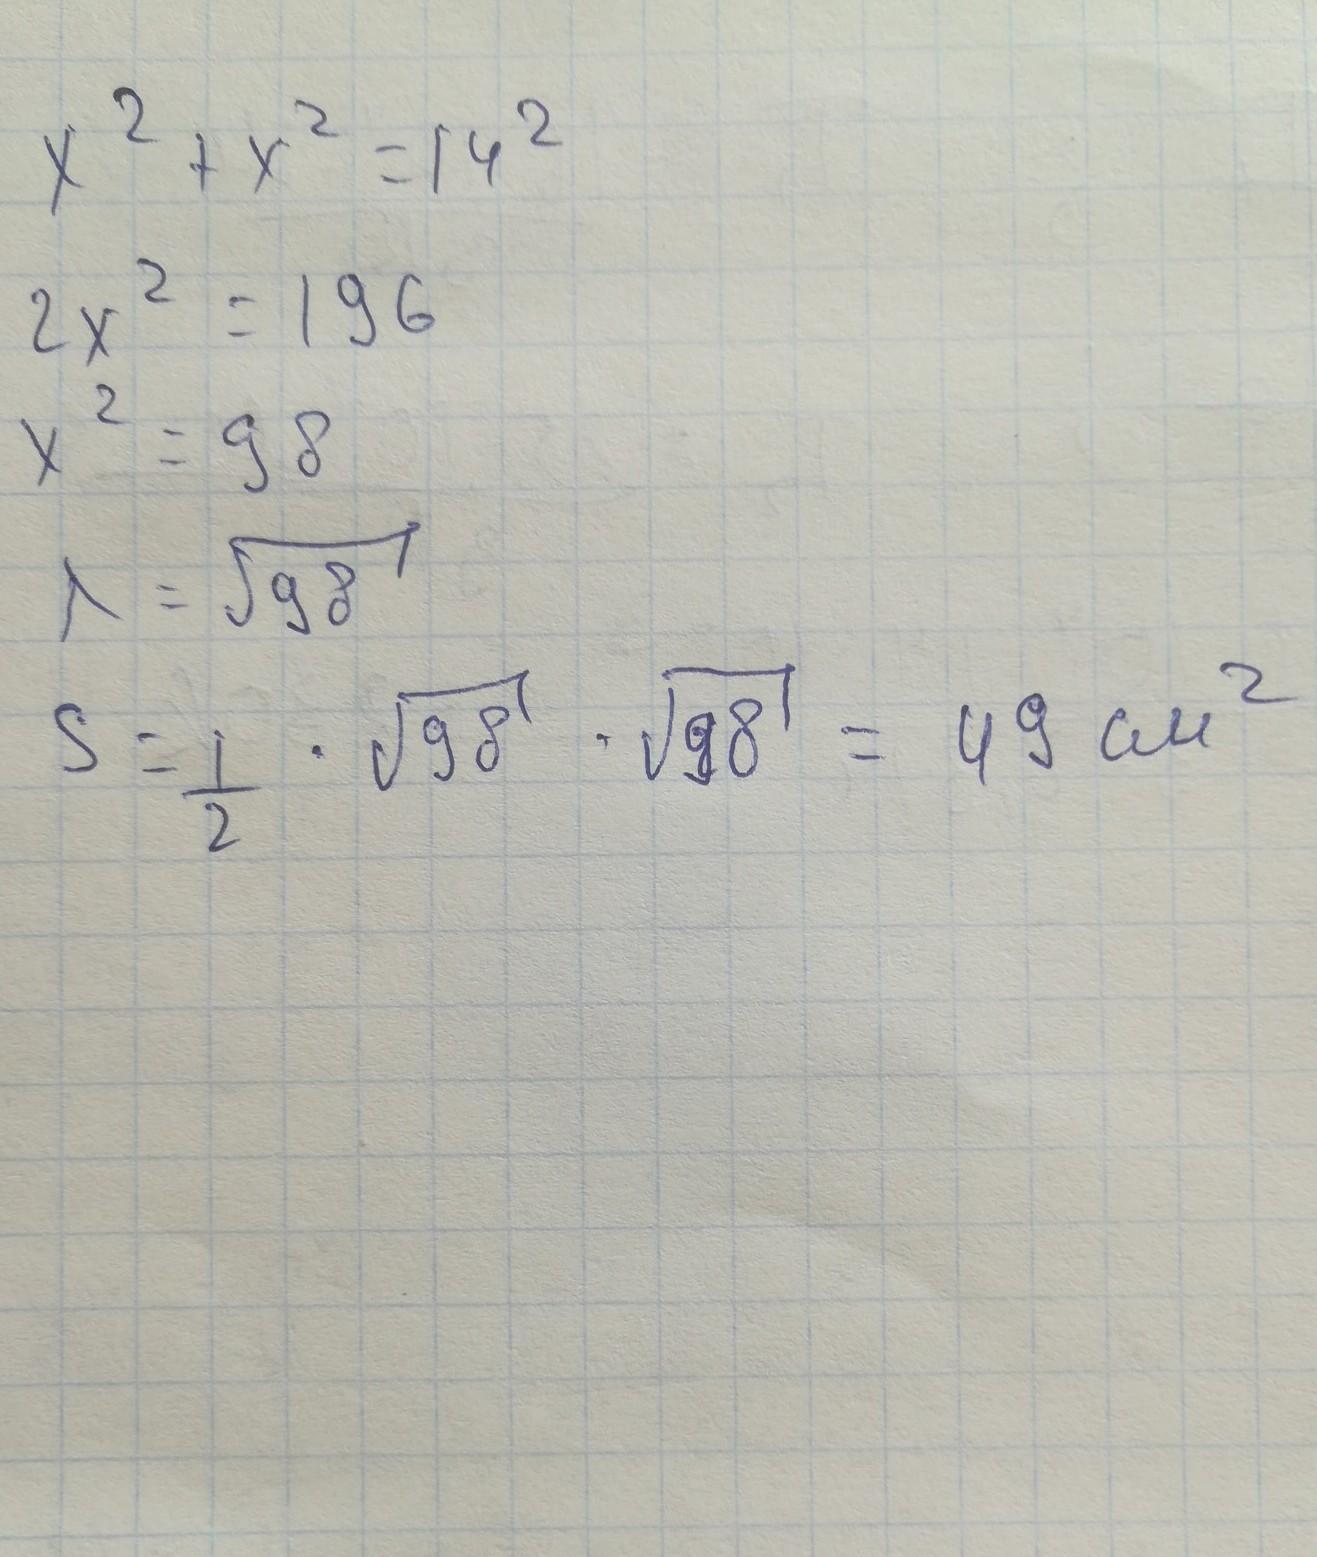 x² + x² = 14²
2x² = 196
x² = 98
x = √98
S = 1/2 · √98 · √98 = 49 см²